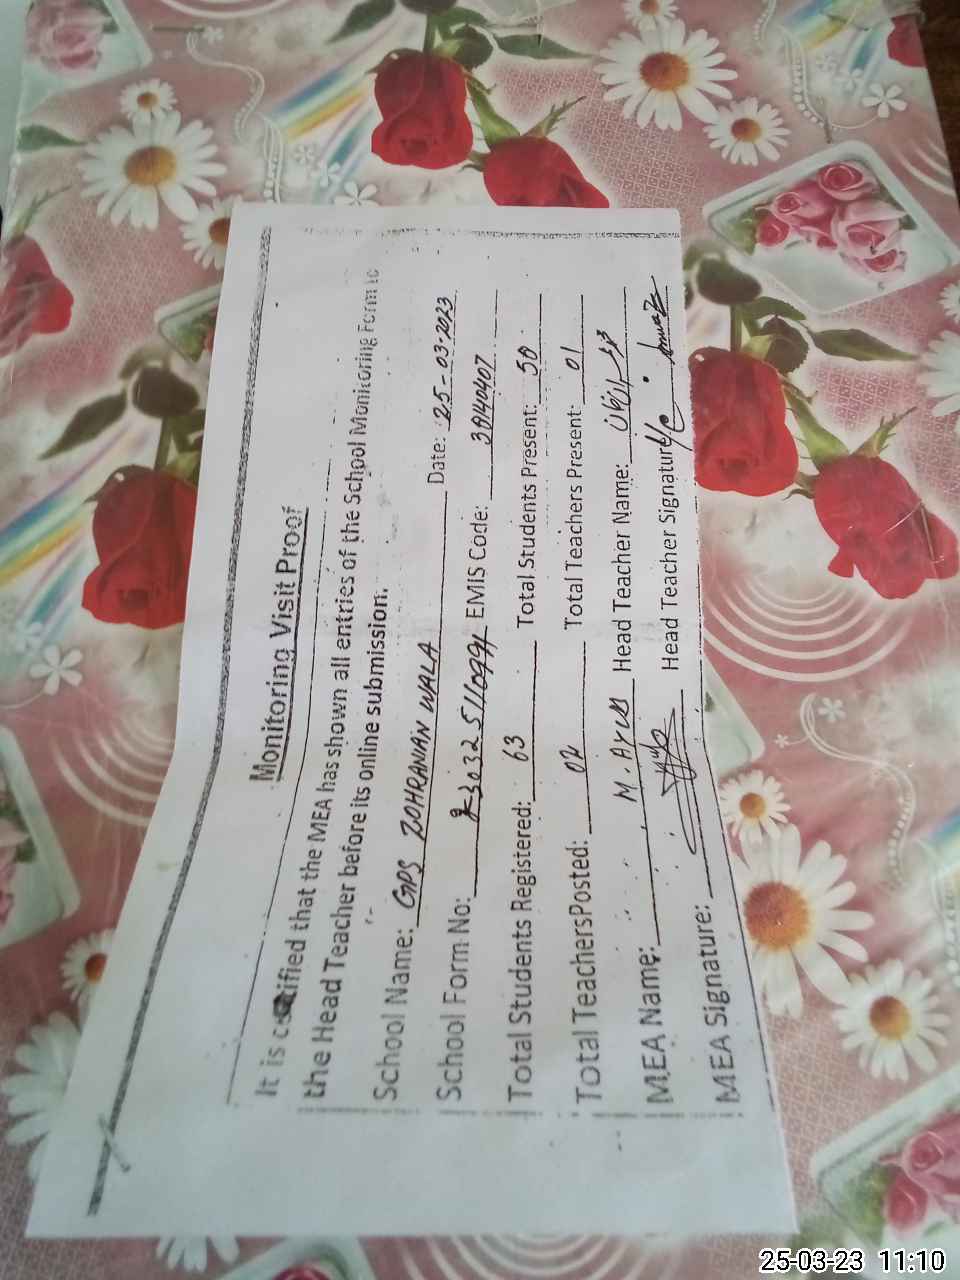 Monitoring Visit Proof
It is certified that the MEA has shown all entries of the School Monitoring Form to
the Head Teacher before its online submission.
School Name: GPS ZOHRANIAN WALA Date: 25-03-2023
School Form No: EMIS Code:
Total Students Registered: 63 Total Students Present: 50
Total TeachersPosted: 02 Total Teachers Present: 01
MEA Name: M. AYUB Head Teacher Name:
MEA Signature: Head Teacher Signature
25-03-23 11:10